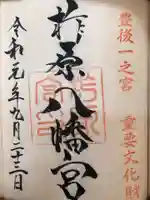 豊後一之宮
重要文化財
柞原八幡宮
令和元年九月二十二日